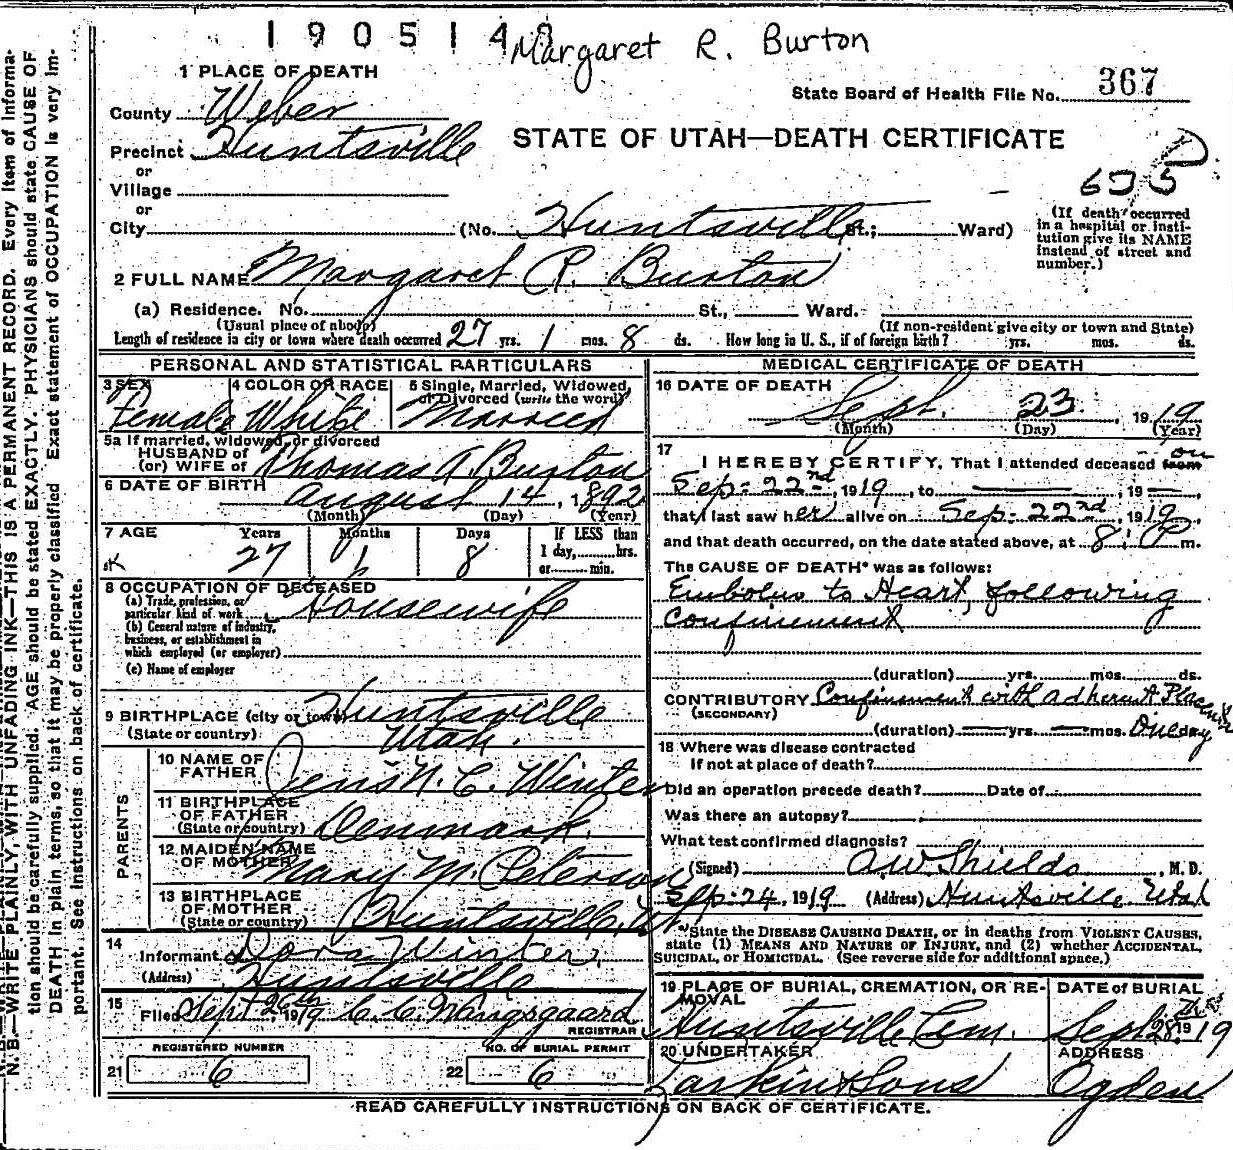 190514
Margaret R. Burton
1 PLACE OF DEATH
State Board of Health File No. 367
County Weber
STATE OF UTAH—DEATH CERTIFICATE
Precinct Huntsville
or
Village
or
City (No. Huntsville St.; Ward)
(If death occurred in a hospital or institution give its NAME instead of street and number.)
2 FULL NAME Margaret R. Burton
(a) Residence. No. St., Ward.
(Usual place of abode) (If non-resident give city or town and State)
Length of residence in city or town where death occurred 27 yrs. 1 mos. 8 ds. How long in U. S., if of foreign birth? yrs. mos. ds.
PERSONAL AND STATISTICAL PARTICULARS
3 SEX Female
4 COLOR OR RACE White
5 Single, Married, Widowed, or Divorced (write the word) Married
5a If married, widowed, or divorced
HUSBAND of
(or) WIFE of Thomas A. Burton
6 DATE OF BIRTH August 14, 1892
(Month) (Day) (Year)
7 AGE Years 27 Months Days 8
If LESS than 1 day, hrs. or min.
8 OCCUPATION OF DECEASED
(a) Trade, profession, or particular kind of work Housewife
(b) General nature of industry, business, or establishment in which employed (or employer)
(c) Name of employer
9 BIRTHPLACE (city or town) Huntsville
(State or country) Utah.
PARENTS
10 NAME OF FATHER Jens N. C. Winter
11 BIRTHPLACE OF FATHER (State or country) Denmark.
12 MAIDEN NAME OF MOTHER Mary M. Peterson
13 BIRTHPLACE OF MOTHER (State or country) Huntsville, Ut.
14 Informant Dora Winter
(Address) Huntsville
15 Filed Sept 26th 1919 C. C. Wangsgaard
REGISTRAR
REGISTERED NUMBER
21 6
NO. OF BURIAL PERMIT
22 6
MEDICAL CERTIFICATE OF DEATH
16 DATE OF DEATH
Sept. 23 1919
(Month) (Day) (Year)
17 I HEREBY CERTIFY, That I attended deceased from on
Sep- 22nd, 1919, to , 19 ,
that I last saw her alive on Sep- 22nd, 1919,
and that death occurred, on the date stated above, at 8: P m.
The CAUSE OF DEATH* was as follows:
Embolus to Heart, following
Confinement
(duration) yrs. mos. ds.
CONTRIBUTORY Confinement with adherent Placenta
(SECONDARY)
(duration) yrs. mos. One day
18 Where was disease contracted
If not at place of death?
Did an operation precede death? Date of
Was there an autopsy?
What test confirmed diagnosis?
(Signed) A W Shields, M. D.
Sep- 24, 1919 (Address) Huntsville Utah
*State the DISEASE CAUSING DEATH, or in deaths from VIOLENT CAUSES,
state (1) MEANS AND NATURE OF INJURY, and (2) whether ACCIDENTAL,
SUICIDAL, or HOMICIDAL. (See reverse side for additional space.)
19 PLACE OF BURIAL, CREMATION, OR REMOVAL
Huntsville Cem.
DATE of BURIAL
Sept. 28 1919
20 UNDERTAKER
Larkin & Sons
ADDRESS
Ogden
READ CAREFULLY INSTRUCTIONS ON BACK OF CERTIFICATE.
N. B.—WRITE PLAINLY, WITH UNFADING INK—THIS IS A PERMANENT RECORD. Every item of information should be carefully supplied. AGE should be stated EXACTLY. PHYSICIANS should state CAUSE OF DEATH in plain terms, so that it may be properly classified. Exact statement of OCCUPATION is very important. See instructions on back of certificate.